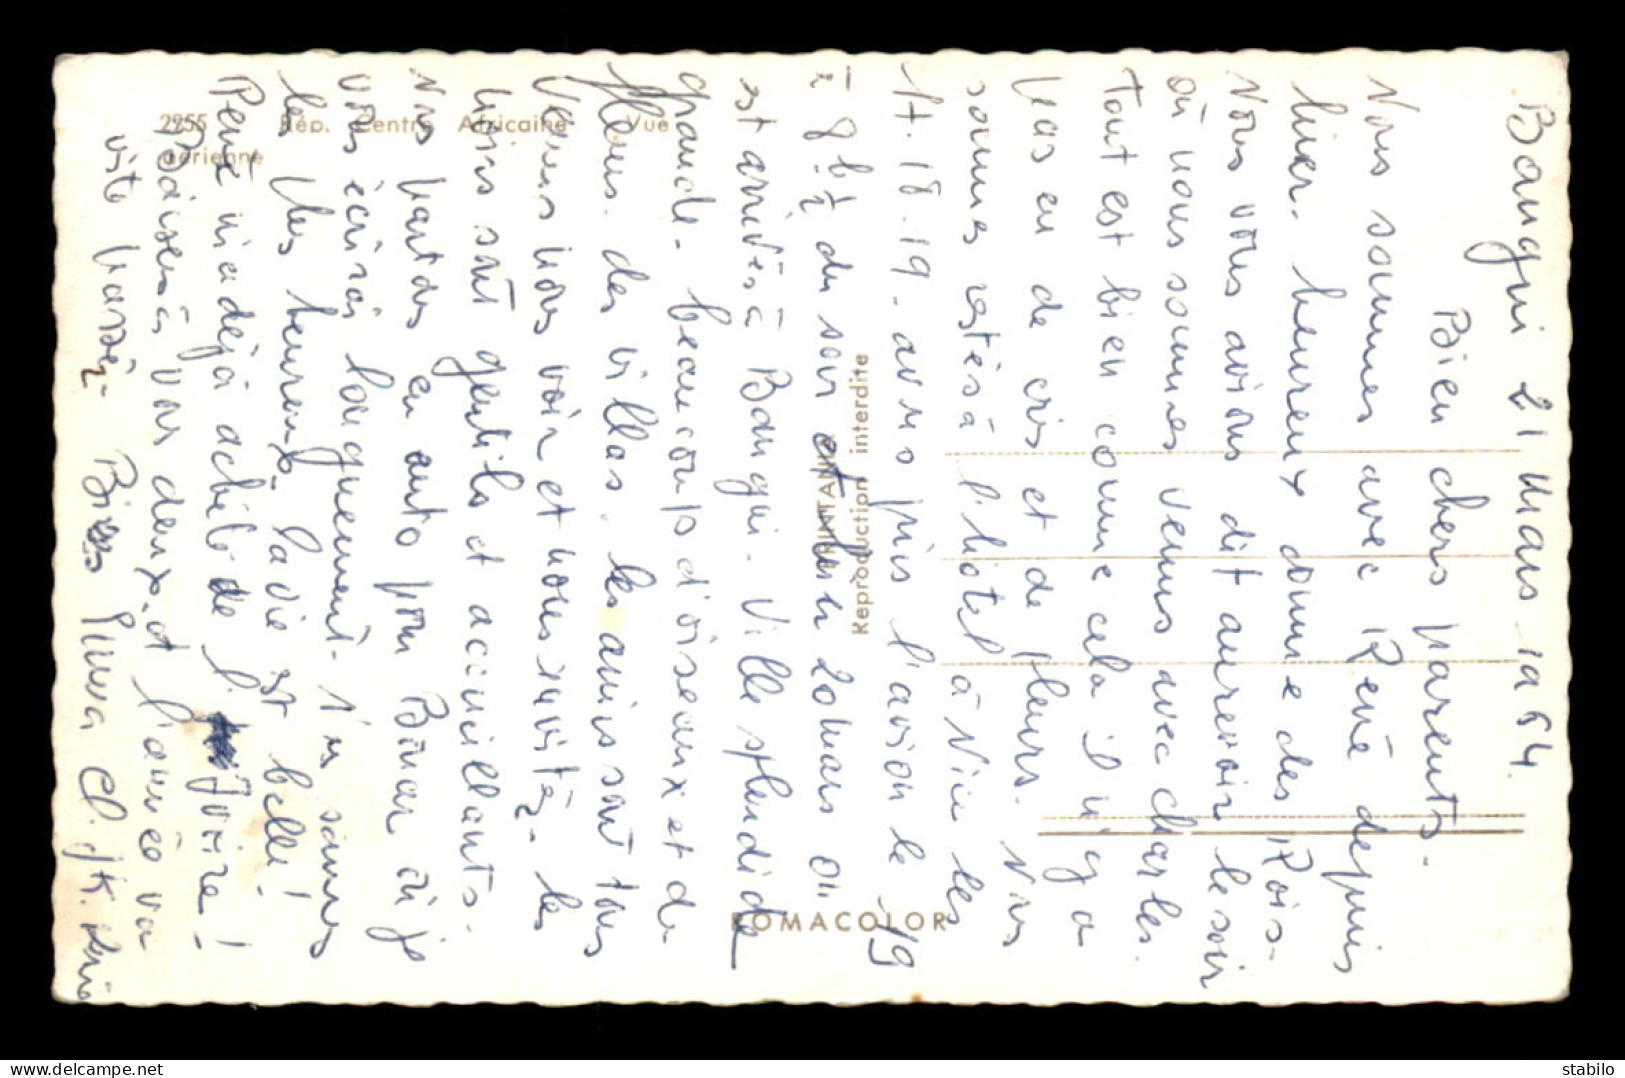 Bangui 21 Mars 1964
Bien chers parents.
Nous sommes avec René depuis
hier. heureux comme des Rois-
Nous vous avions dit aurevoir le soir
où nous sommes venus avec charles.
Tout est bien comme cela il n'y a
pas eu de cris et de pleurs. Nous
sommes restés à l'hotel à Nice les
17.18.19. avons pris l'avion le 19
à 8h½ du soir et hier 20 Mars on
est arrivés à Bangui. Ville splendide
grande. beaucoup d'oiseaux et de
fleurs. des villas. les amis sont tous
venus nous voir et nous invitez. les
noirs sont gentils et accueillants.
Nous partons en auto pour Bouar où je
vous écrirai longuement. J'en sommes
les plus heureux. la vie est belle!
René m'a déjà acheté de l'ivoire!
Baisers à vous deux. et l'année va
vite passée. Bises
2255 Rép. Centre Africaine Vue
aérienne
Reproduction interdite
ROMACOLOR
stabilo